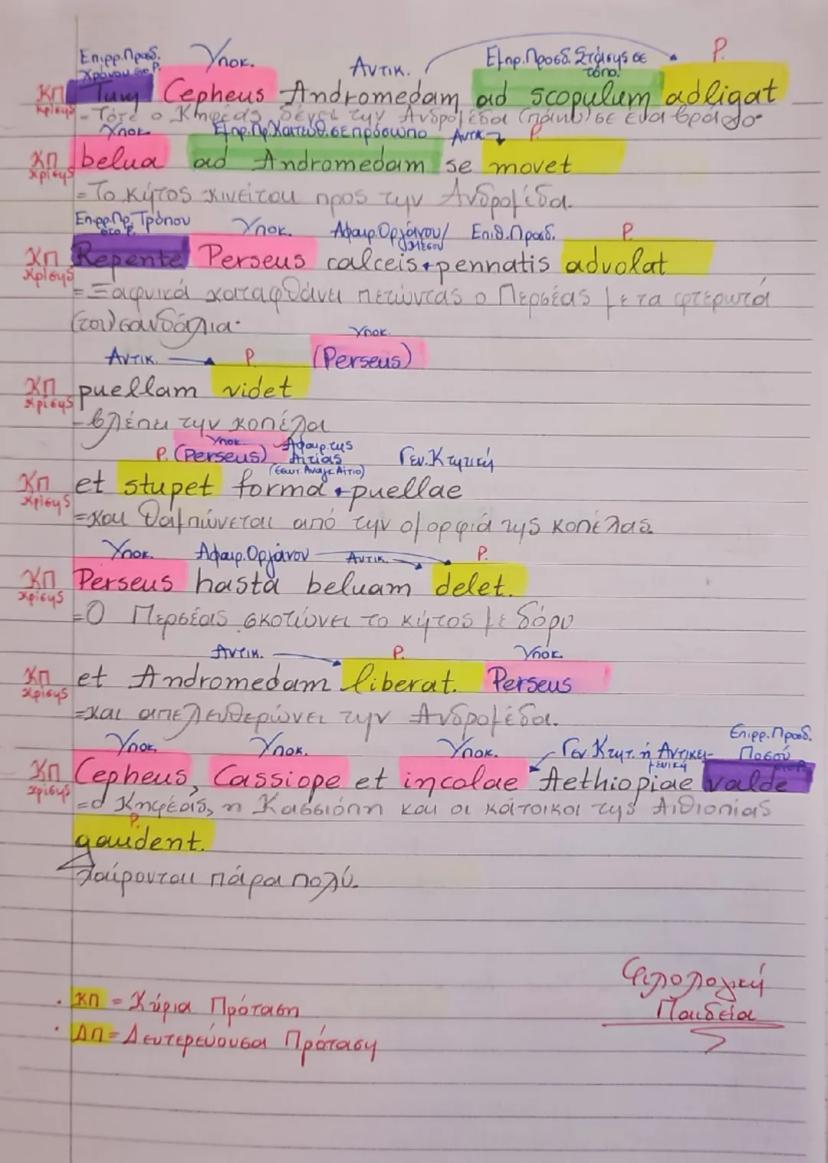 Επιρρ. Προσδ. Υποκ. Αντικ. Εμπρ. Προσδ. Στάσης σε Ρ.
Χρόνου στο Ρ. τόπο
ΚΠ Tum Cepheus Andromedam ad scopulum adligat
Κρίσης - Τότε ο Κηφέας δένει την Ανδρομέδα (πάνω) σε ένα βράχο.
Υποκ. Εμπρ. Πρ. Κατεύθ. σε πρόσωπο Αντικ Ρ.
ΚΠ belua ad Andromedam se movet
Κρίσης = Το κήτος κινείται προς την Ανδρομέδα.
Επιρρ. Πρ. Τρόπου Υποκ. Αφαιρ. Οργάνου/ Επιθ. Προσδ. Ρ.
στο Ρ. Μέσου
ΚΠ Repente Perseus calceis pennatis advolat
Κρίσης = Ξαφνικά καταφθάνει πετώντας ο Περσέας με τα φτερωτά
(του) σανδάλια.
Υποκ.
Αντικ. Ρ. (Perseus)
ΚΠ puellam videt
Κρίσης - βλέπει την κοπέλα
Υποκ. Αφαιρ. της
Ρ. (Perseus) Αιτίας Γεν. Κτητική
(εσωτ. Αναγκ. Αίτιο)
ΚΠ et stupet forma puellae
Κρίσης = και θαμπώνεται από την ομορφιά της κοπέλας.
Υποκ. Αφαιρ. Οργάνου Αντικ. Ρ.
ΚΠ Perseus hasta beluam delet.
Κρίσης = Ο Περσέας σκοτώνει το κήτος με δόρυ
Αντικ. Ρ. Υποκ.
ΚΠ et Andromedam liberat. Perseus
Κρίσης = και απελευθερώνει την Ανδρομέδα.
Επιρρ. Προσδ.
Υποκ. Υποκ. Υποκ. Γεν. Κτητ. ή Αντικει- Ποσού
μενική στο Ρ.
ΚΠ Cepheus, Cassiope et incolae Aethiopiae valde
Κρίσης = ο Κηφέας, η Κασσιόπη και οι κάτοικοι της Αιθιοπίας
Ρ.
gaudent.
χαίρονται πάρα πολύ.
· ΚΠ = Κύρια Πρόταση
· ΔΠ = Δευτερεύουσα Πρόταση
Φιλολογική
Παιδεία